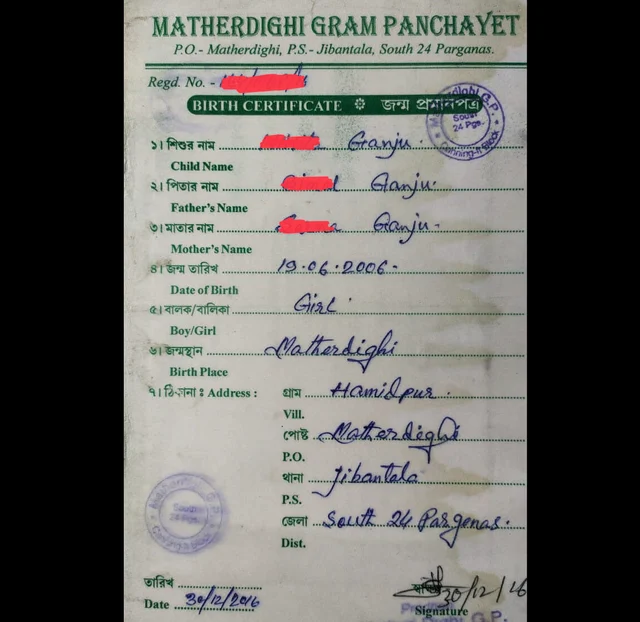 MATHERDIGHI GRAM PANCHAYET
P.O.- Matherdighi, P.S.- Jibantala, South 24 Parganas.
Regd. No. -
BIRTH CERTIFICATE জন্ম প্রমানপত্র
Matherdighi G.P. South 24 Pgs. Canning-II Block
১। শিশুর নাম Ganju
Child Name
২। পিতার নাম Ganju
Father's Name
৩। মাতার নাম Ganju
Mother's Name
৪। জন্ম তারিখ 19.06.2006
Date of Birth
৫। বালক/বালিকা Girl
Boy/Girl
৬। জন্মস্থান Matherdighi
Birth Place
৭। ঠিকানা ঃ Address : গ্রাম Hamidpur
Vill.
পোষ্ট Matherdighi
P.O.
থানা Jibantala
P.S.
জেলা South 24 Pargenas.
Dist.
Matherdighi G.P. South 24 Pgs. Canning-II Block
তারিখ
Date 30/12/2016 30/12/16
Signature
G.P.